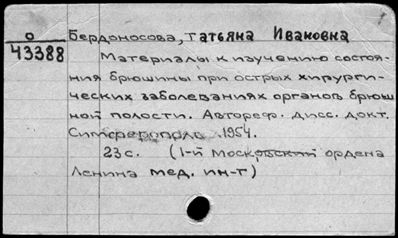 О Бердоносова, Татьяна Ивановна
43388
Материалы к изучению состоя-
ния брюшины при острых хирурги-
ческих заболеваниях органов брюш
ной полости. Автореф. дисс. докт.
Симферополь. 1954.
23 с. (1-й Московский ордена
Ленина мед. ин-т)